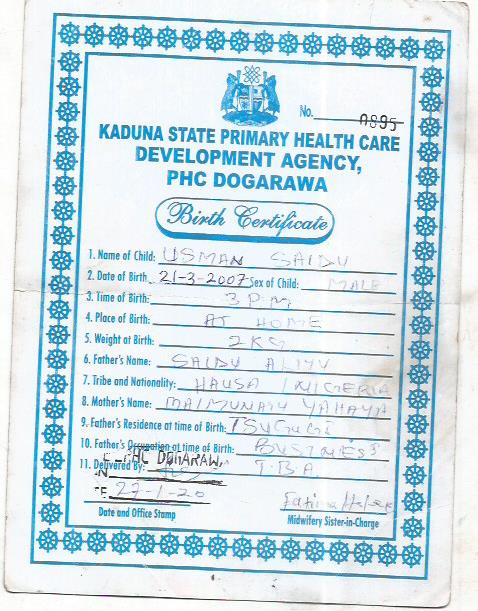 No. 0895
KADUNA STATE PRIMARY HEALTH CARE
DEVELOPMENT AGENCY,
PHC DOGARAWA
Birth Certificate
1. Name of Child: USMAN SAIDU
2. Date of Birth 21-3-2007 Sex of Child: MALE
3. Time of Birth: 3 PM
4. Place of Birth: AT HOME
5. Weight at Birth: 2KG
6. Father's Name: SAIDU ALIYU
7. Tribe and Nationality: HAUSA / NIGERIA
8. Mother's Name: MAIMUNATU YAHAYA
9. Father's Residence at time of Birth:
10. Father's Occupation at time of Birth: BUSINESS
PHC DOGARAW
11. Delivered By: T.B.A
27-1-20 Fatima
Date and Office Stamp Midwifery Sister-in-Charge